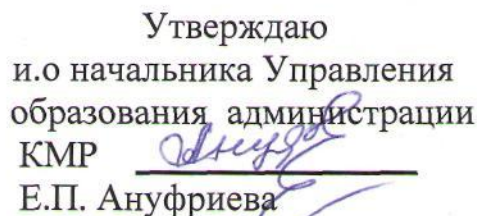 Утверждаю
и.о начальника Управления
образования администрации
КМР
Е.П. Ануфриева